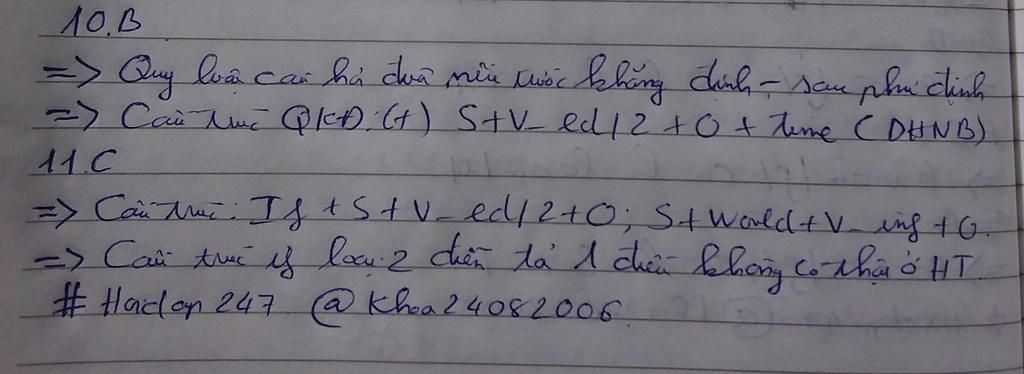 10.B
=> Quy luật câu hỏi đuôi nếu trước khẳng định - sau phủ định
=> Cấu trúc QKĐ: (+) S+V_ed/2 + O + time (DHNB)
11.C
=> Cấu trúc: If + S + V_ed/2+O; S+Would+V_inf +O.
=> Cấu trúc if loại 2 diễn tả 1 điều không có thật ở HT.
# Hoidap247 @Khoa24082006